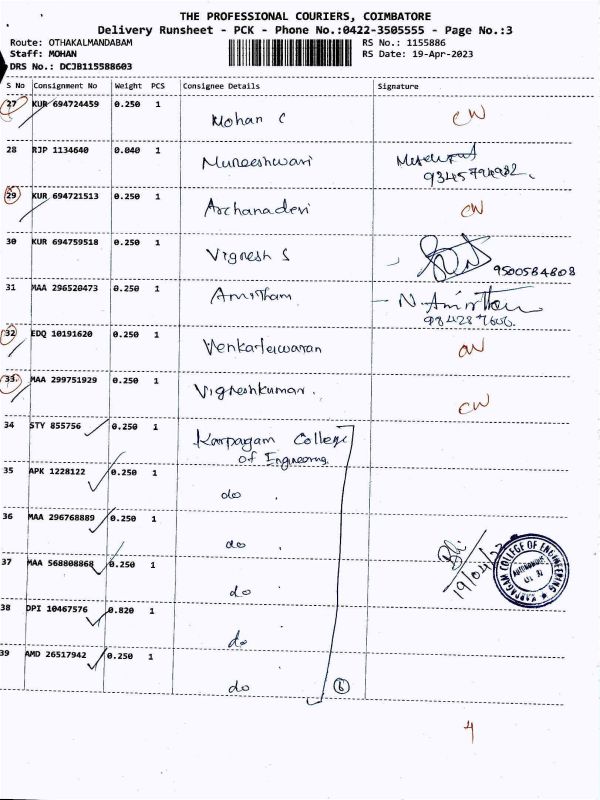 THE PROFESSIONAL COURIERS, COIMBATORE
Delivery Runsheet - PCK - Phone No.:0422-3505555 - Page No.:3
Route: OTHAKALMANDABAM RS No.: 1155886
Staff: MOHAN RS Date: 19-Apr-2023
DRS No.: DCJB115588603
S No Consignment No Weight PCS Consignee Details Signature
27 KUR 694724459 0.250 1 Mohan C CW
28 RJP 1134640 0.040 1 Muneeshwari
29 KUR 694721513 0.250 1 Archanadevi CW
30 KUR 694759518 0.250 1 Vignesh S 9500584808
31 MAA 296520473 0.250 1 Amirtham N. Amirtham
32 EDQ 10191620 0.250 1 Venkateswaran CW
33 MAA 299751929 0.250 1 Vigneshkumar. CW
34 STY 855756 0.250 1 Karpagam College
of Engineering
35 APK 1228122 0.250 1 do
36 MAA 296768889 0.250 1 do
37 MAA 568808868 0.250 1 do
19/04/23
KARPAGAM COLLEGE OF ENGINEERING
AUTONOMOUS
38 DPI 10467576 0.820 1 do
39 AMD 26517942 0.250 1 do 6
4